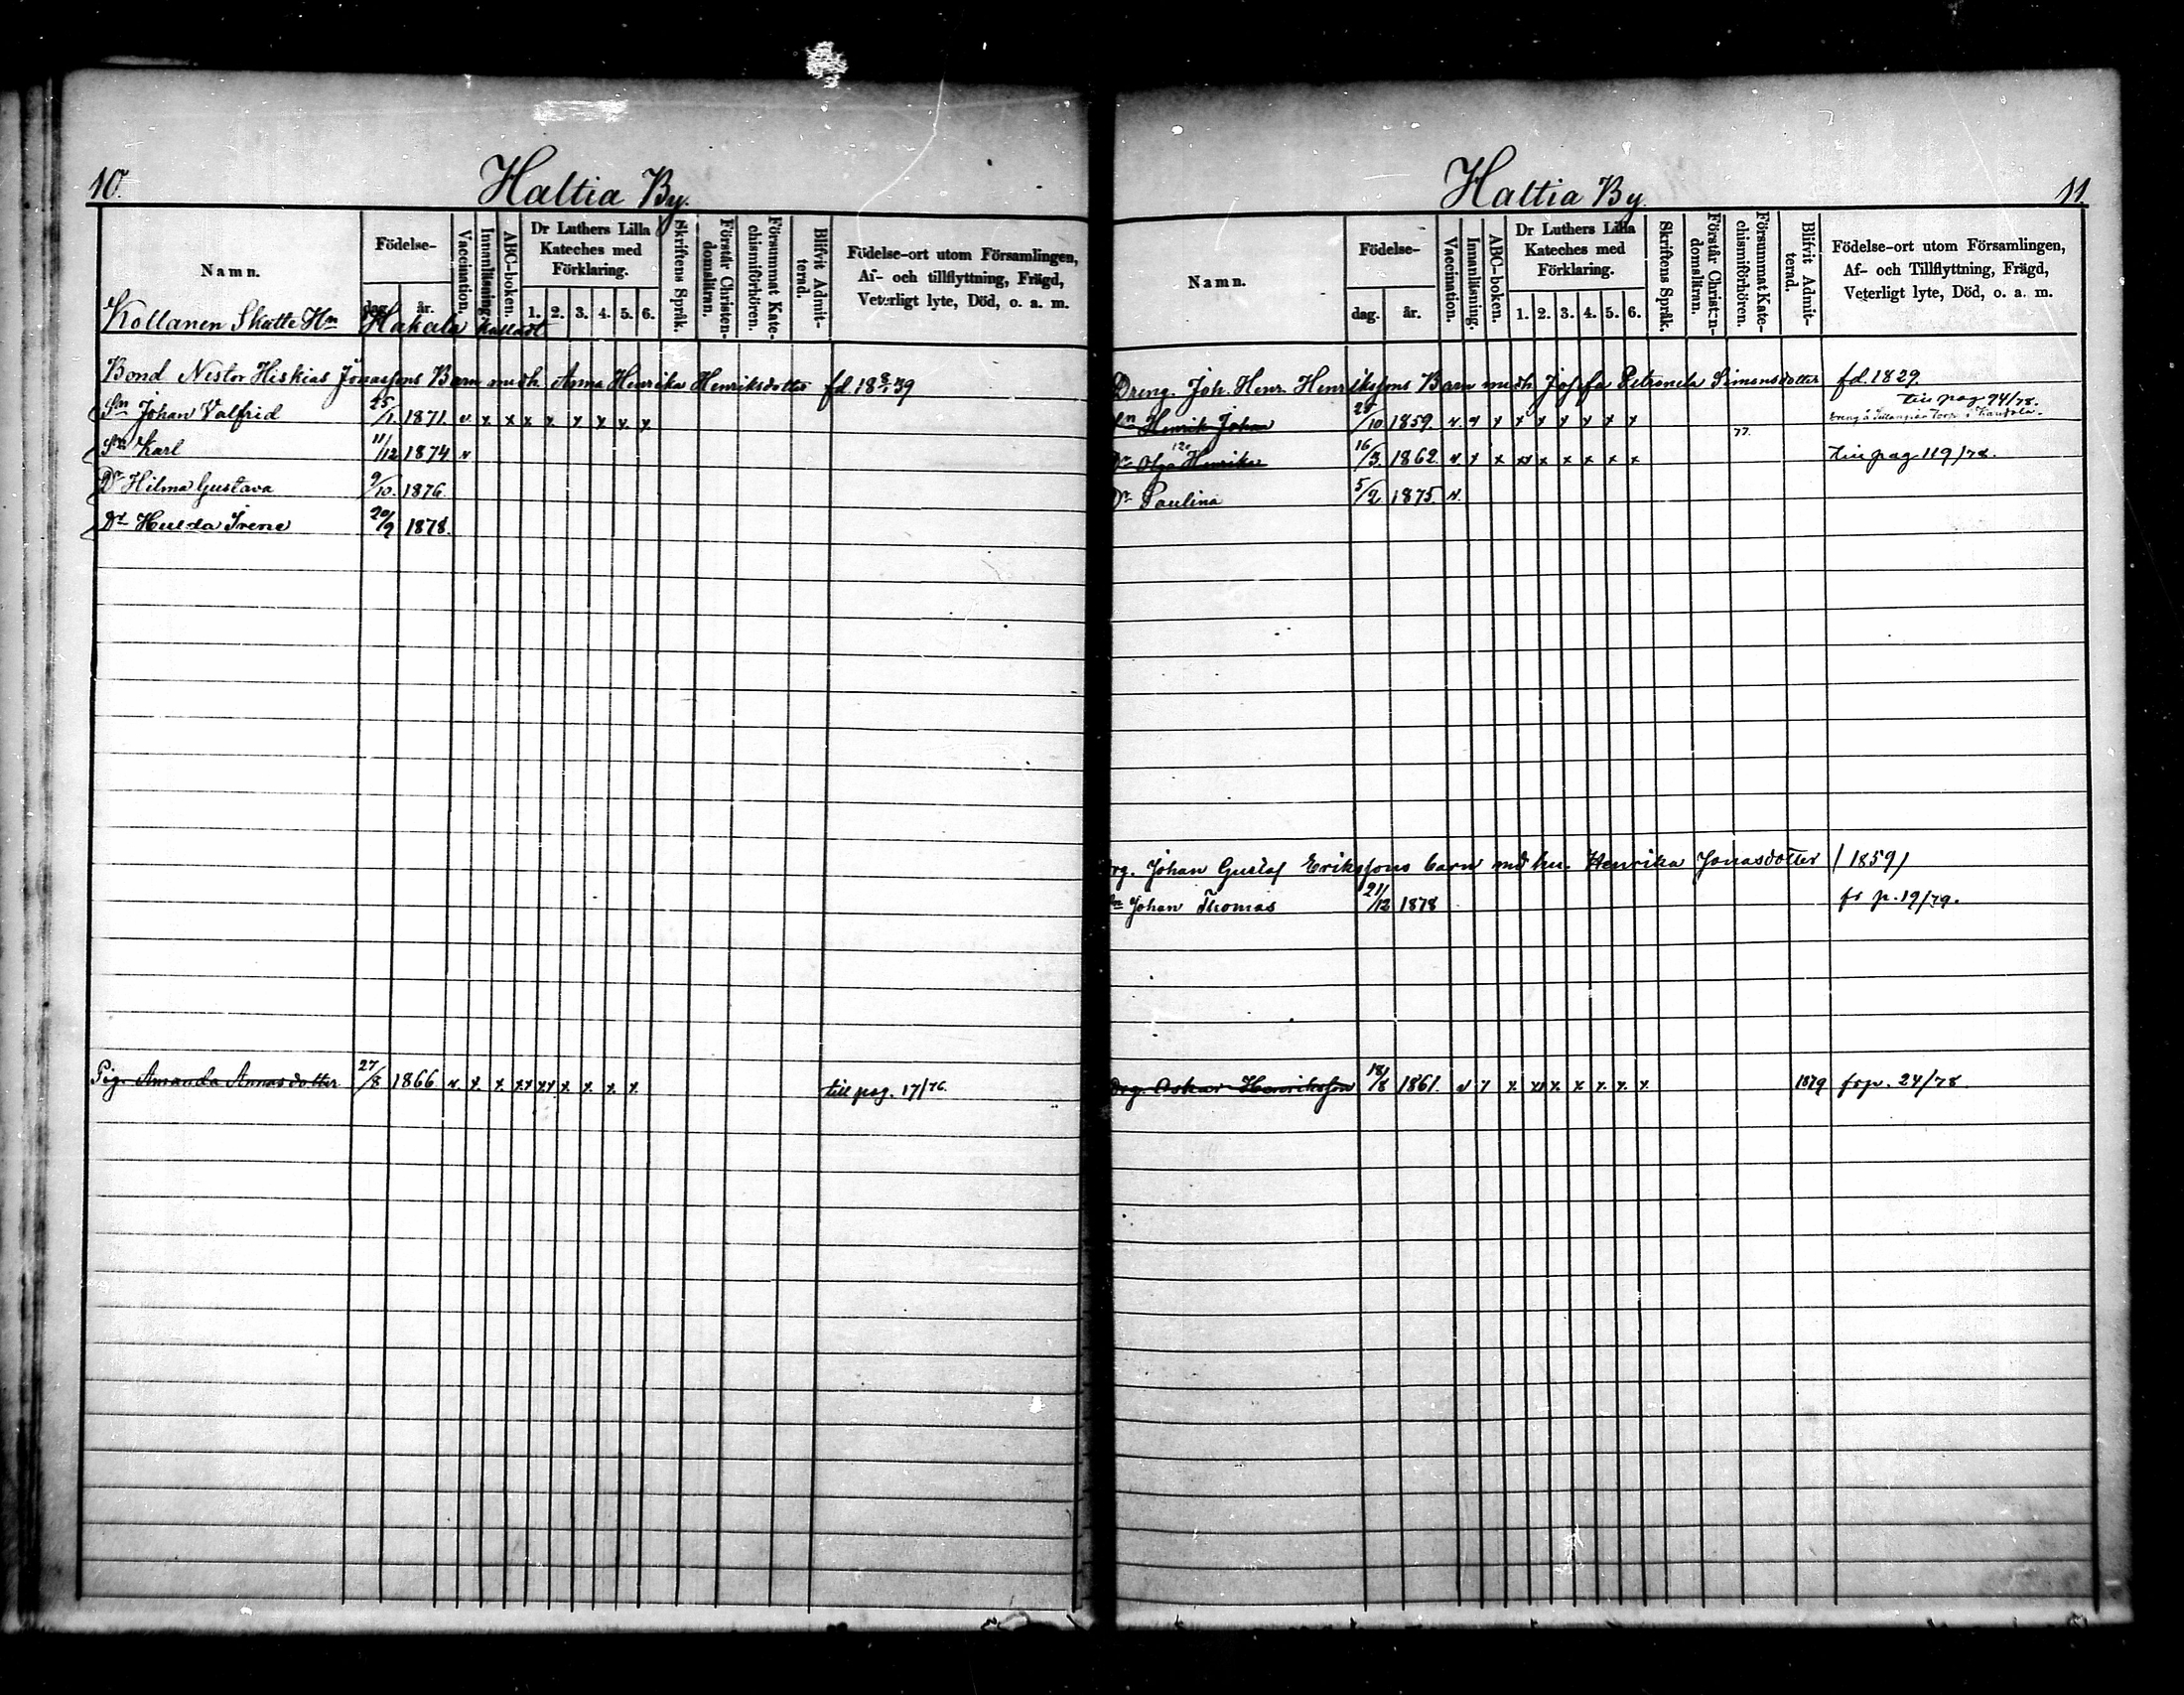 10.
Haltia By.
Namn.
Födelse-
dag. år.
Vaccination.
Innanläsning.
ABC-boken.
Dr Luthers Lilla Kateches med Förklaring.
1. 2. 3. 4. 5. 6.
Skriftens Språk.
Förstår Christendomsläran.
Försummat Katechismiförhören.
Blifvit Admitterad.
Födelse-ort utom Församlingen, Af- och tillflyttning, Frägd, Veterligt lyte, Död, o. a. m.
Kollanen Skatte Hn Hakala kalladt
Bond Nestor Hiskias Jonassons Barn med h. Anna Henrika Henriksdotter fd. 18 8/3 39
Sn Johan Valfrid 25/1. 1871. v x x x x x x x x
Sn Karl 11/12 1874 v
Dr Hilma Gustava 9/10. 1876.
Dr Hulda Irene 20/9 1878.
Pig. Amanda Annasdotter 27/8 1866 v x x xx xx x x x x till pag. 17/76.
Haltia By
11.
Namn.
Födelse-
dag. år.
Vaccination.
Innanläsning.
ABC-boken.
Dr Luthers Lilla Kateches med Förklaring.
1. 2. 3. 4. 5. 6.
Skriftens Språk.
Förstår Christen-domsläran.
Försummat Kate-chismiförhören.
Blifvit Admit-terad.
Födelse-ort utom Församlingen, Af- och Tillflyttning, Frägd, Veterligt lyte, Död, o. a. m.
Dreng. Joh. Henr. Henrikssons Barn med h. Josefa Petronela Simonsdotter fd. 1829.
Sn Henrik Johan 28/10 1859. v x x x x x x x x till pag 94/78.
Dr Olga Henrika 16/3. 1862. v x x xx x x x x x 77. till pag 119/78.
Dr Paulina 5/2 1875. v.
Drg. Johan Gustaf Erikssons barn md hu. Henrika Jonasdotter /1859/
Sn Johan Thomas 21/12 1878 fr p. 19/79.
Drg. Oskar Henriksson 18/8 1861. v x x xx x x x x x 1879 frp. 24/78.